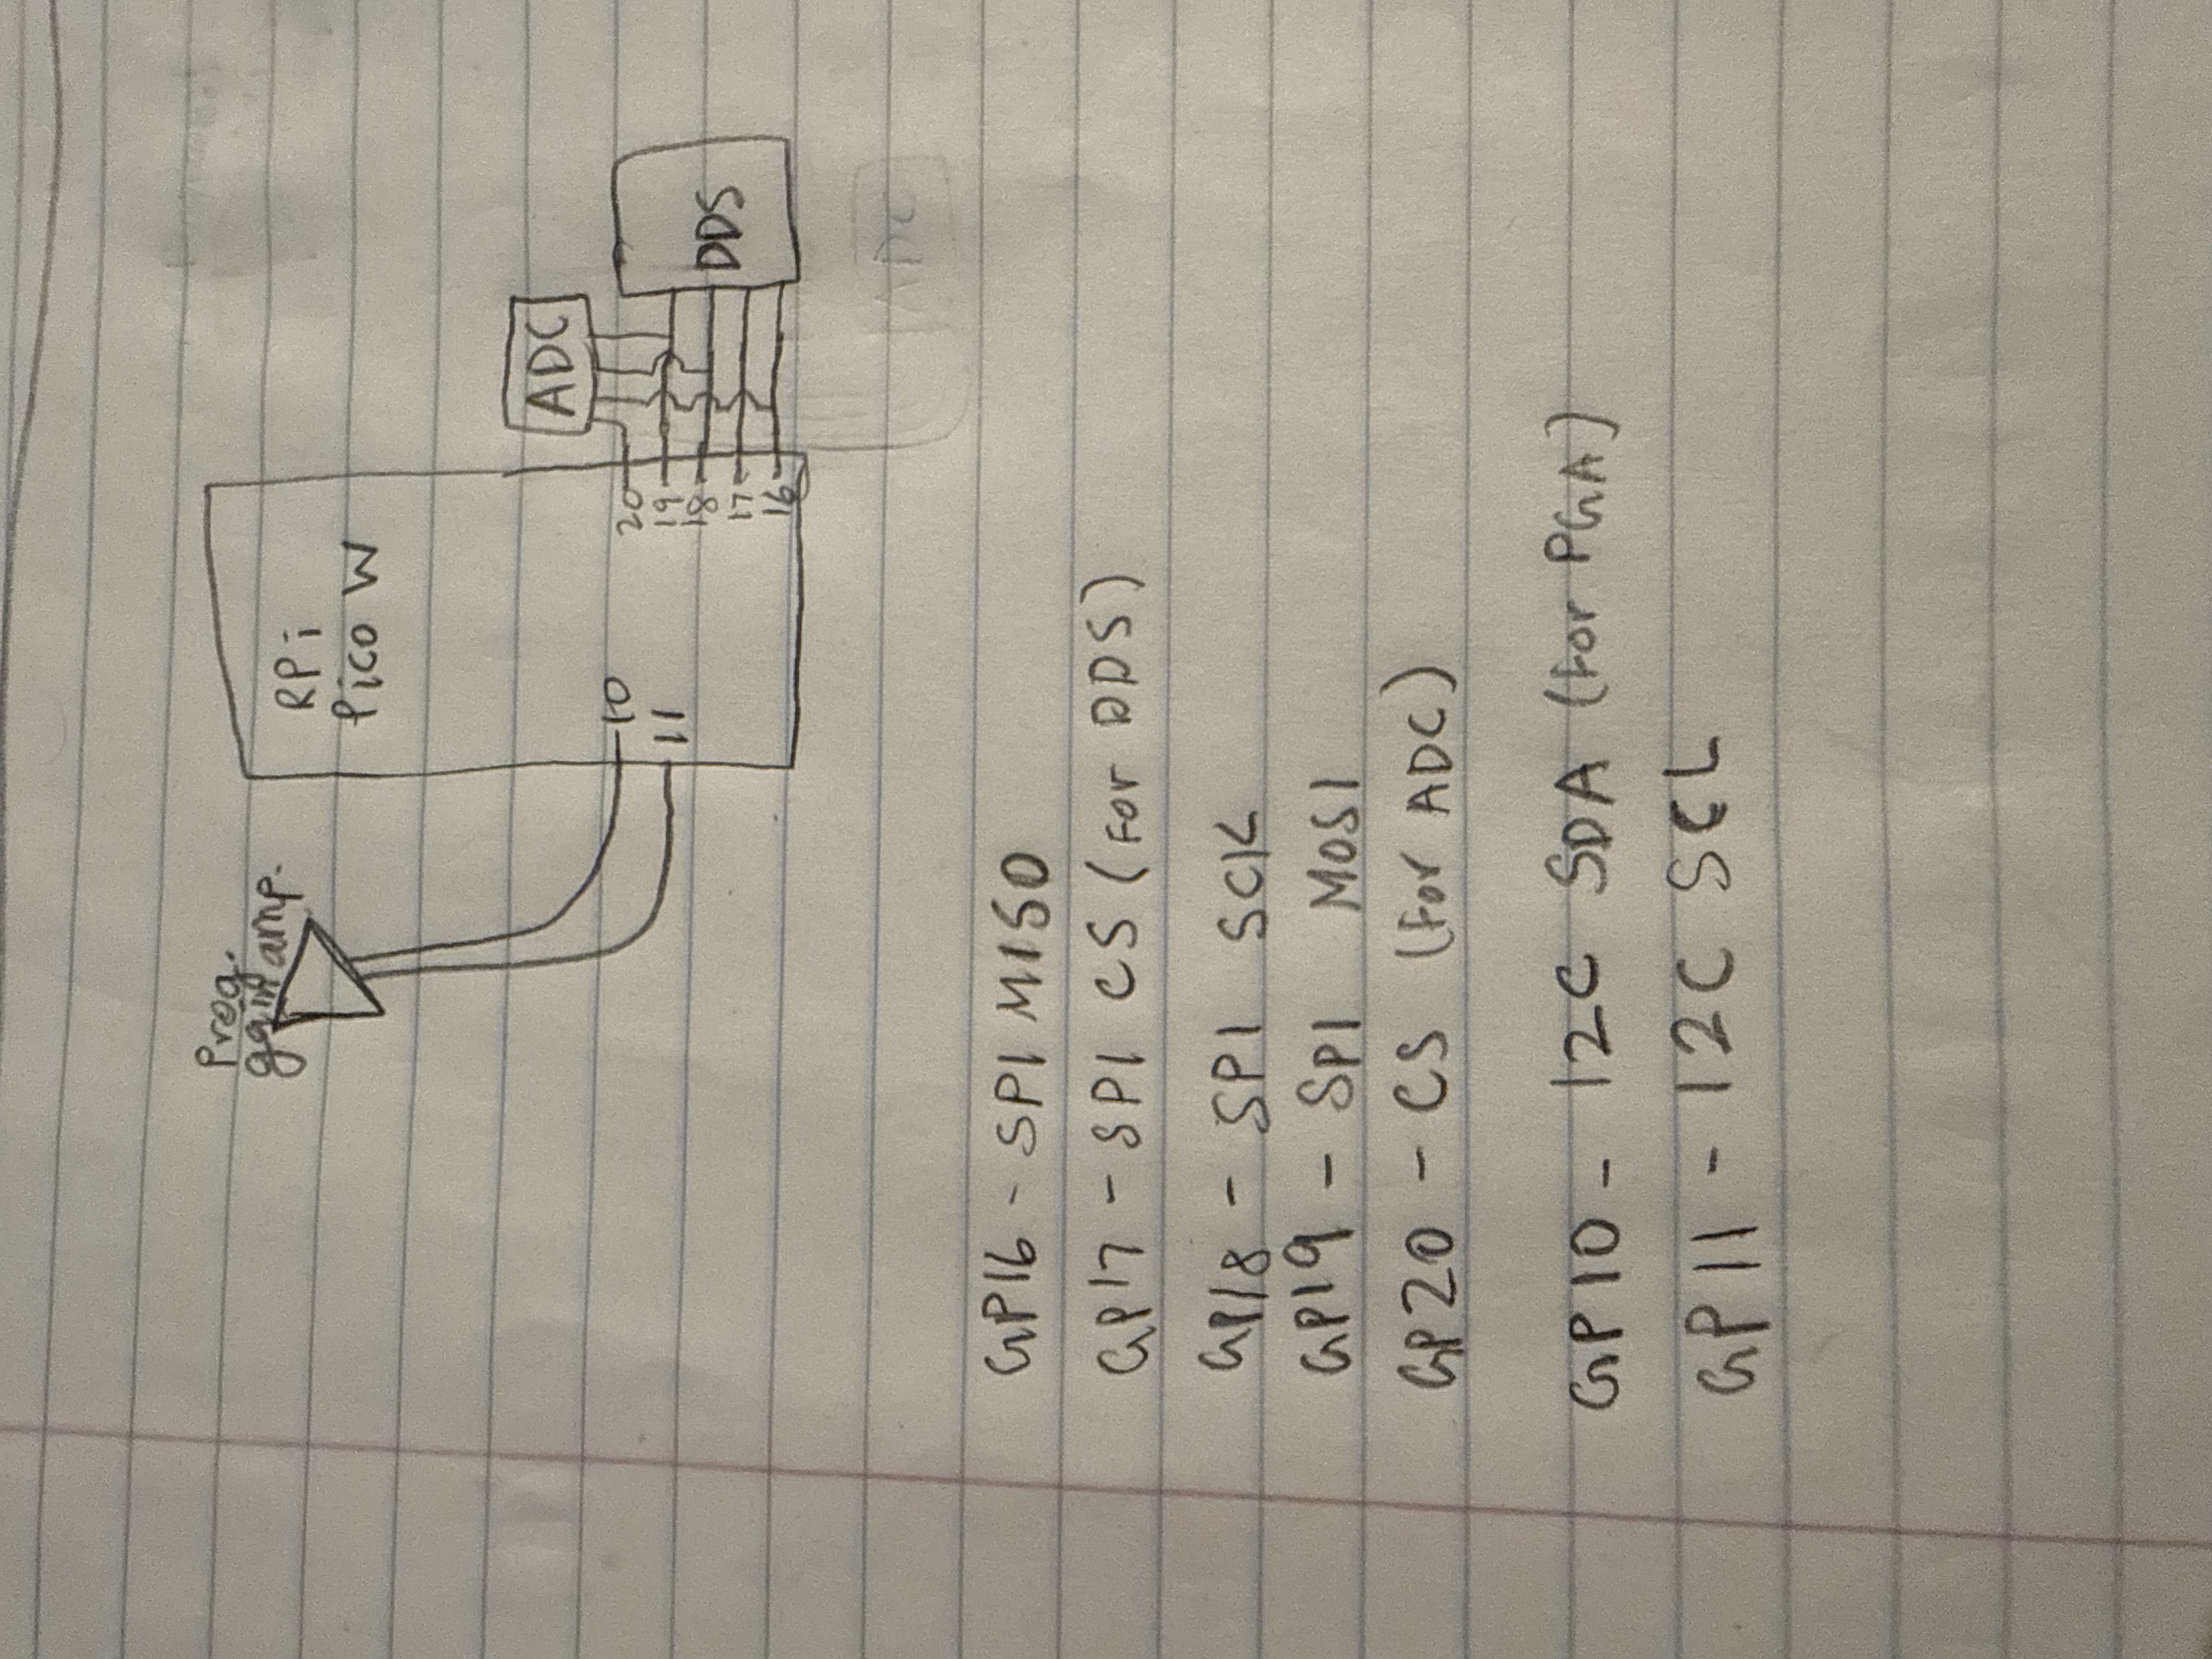 Prog.
gain amp.
RPi
Pico W
ADC
10
11
20
19
18
17
16
DDS
ADC
GP16 - SPI MISO
GP17 - SPI CS (For DDS)
GP18 - SPI SCK
GP19 - SPI MOSI
GP20 - CS (For ADC)
GP10 - I2C SDA (For PGA)
GP11 - I2C SCL